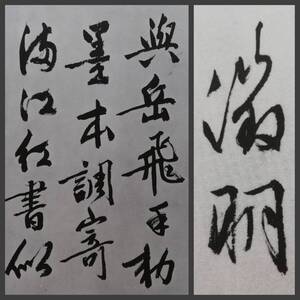 與岳飛手勅
墨本調寄
滿江紅書似
徵明